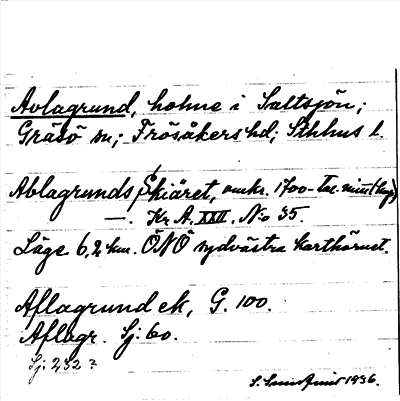 Avlagrund, holme i Saltsjön;
Gräsö sn; Frösåkers hd; Sthlms l.
Ablagrunds Skiäret, omkr. 1700-tal.
—. Kr. A. XXII. N:o 35.
Läge 6,2 km. ÖNÖ sydvästra karthörnet.
Aflagrund ek, G. 100.
Aflagr. Sj. 60.
Sj. 232 ?
1936.